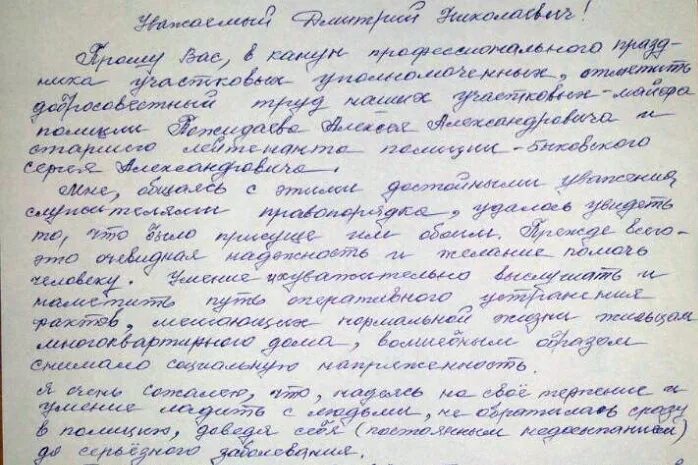 Уважаемый Дмитрий Николаевич!
Прошу Вас, в канун профессионального празд-
ника участковых уполномоченных, отметить
добросовестный труд наших участковых - майора
полиции Пожидаева Алексея Александровича и
старшего лейтенанта полиции - Быковского
Сергея Александровича.
Мне, общаясь с этими достойными уважения
служителями правопорядка, удалось увидеть
то, что было присуще им обоим. Прежде всего-
это очевидная надежность и желание помочь
человеку. Умение уважительно выслушать и
наметить путь оперативного устранения
фактов, мешающих нормальной жизни жильцам
многоквартирного дома, волшебным образом
снимало социальную напряженность.
Я очень сожалею, что, надеясь на своё терпение и
умение ладить с людьми, не обратилась сразу
в полицию, доведя себя (постоянным недосыпанием)
до серьёзного заболевания.